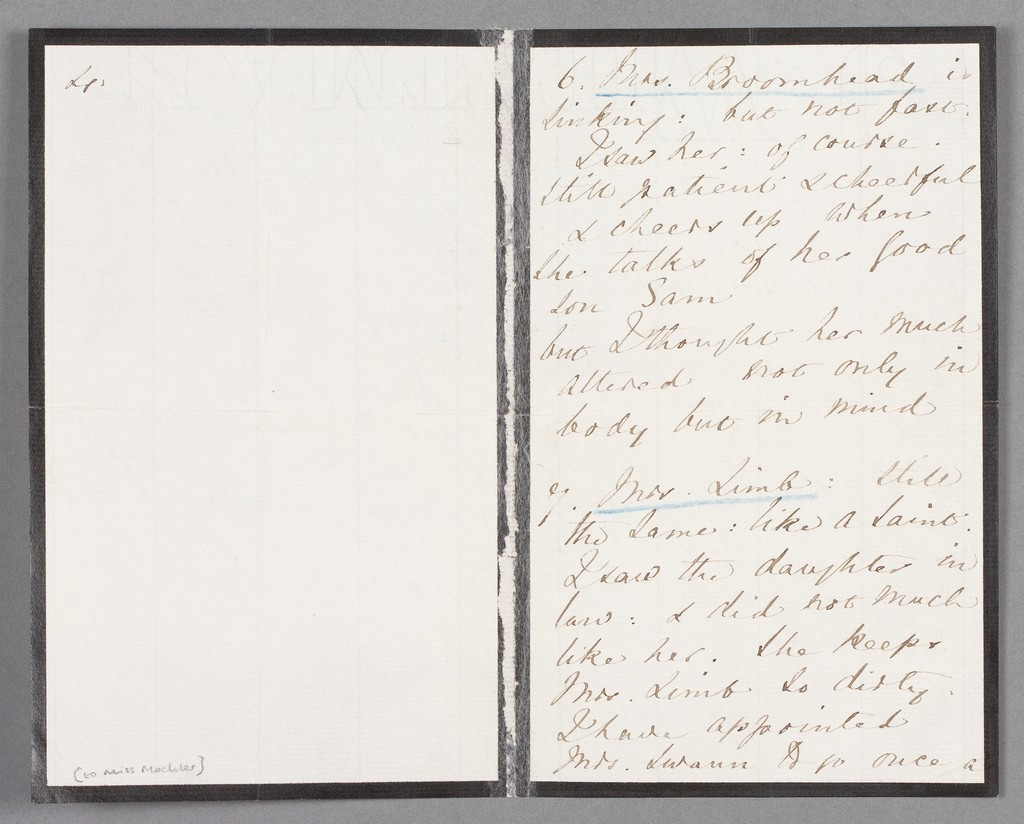 [to Miss Mochler]
6. Mrs. Broomhead is
sinking: but not fast.
I saw her: of course.
still patient & cheerful
& cheers up when
she talks of her good
son Sam
but I thought her much
altered not only in
body but in mind
7. Mrs. Limb: still
the same: like a saint.
I saw the daughter in
law: & did not much
like her. She keeps
Mrs. Limb so dirty.
I have appointed
Mrs. Swann to go once a